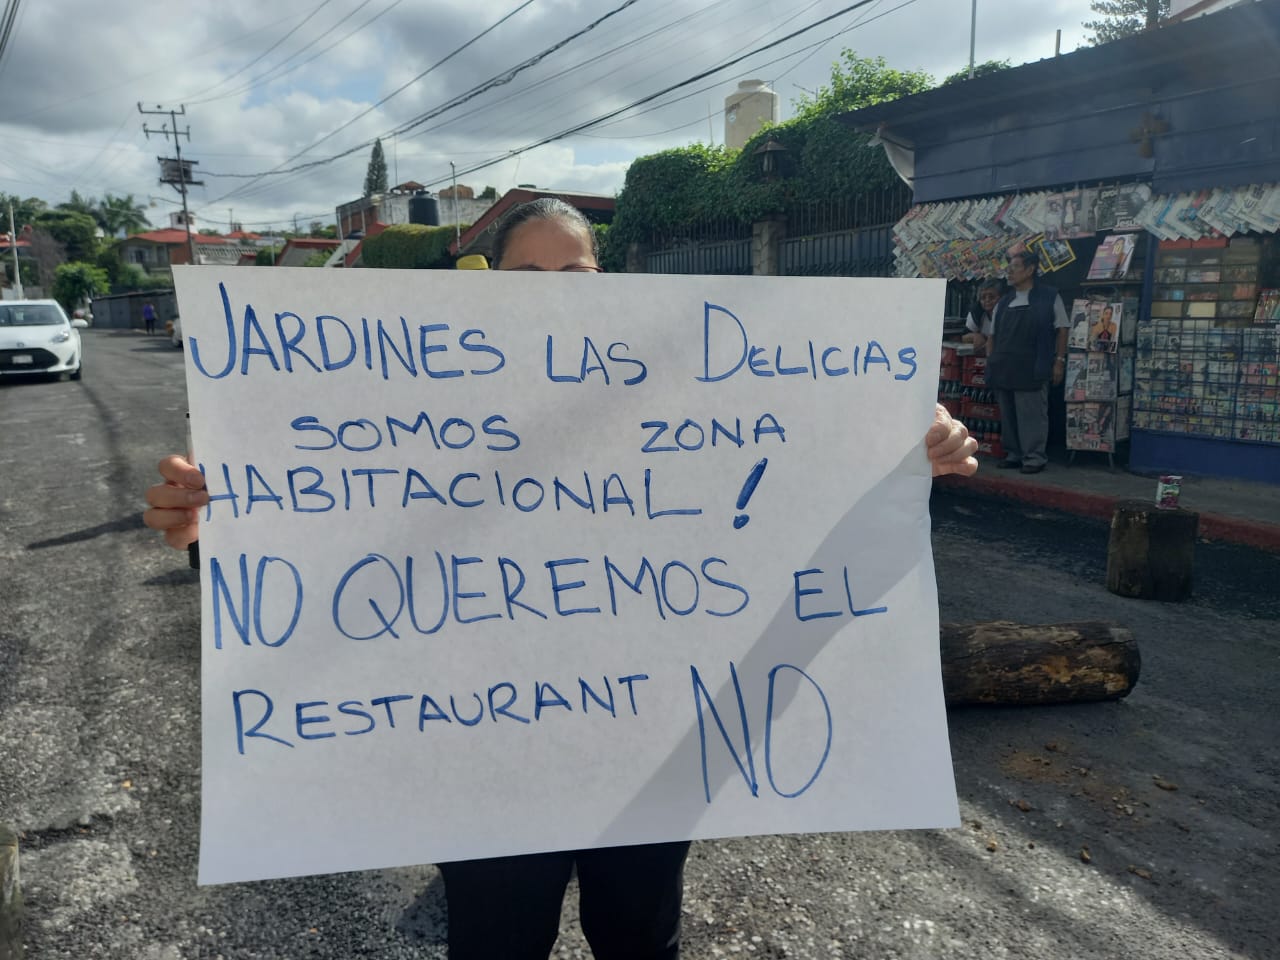 JARDINES LAS DELICIAS
SOMOS ZONA
HABITACIONAL!
NO QUEREMOS EL
RESTAURANT NO